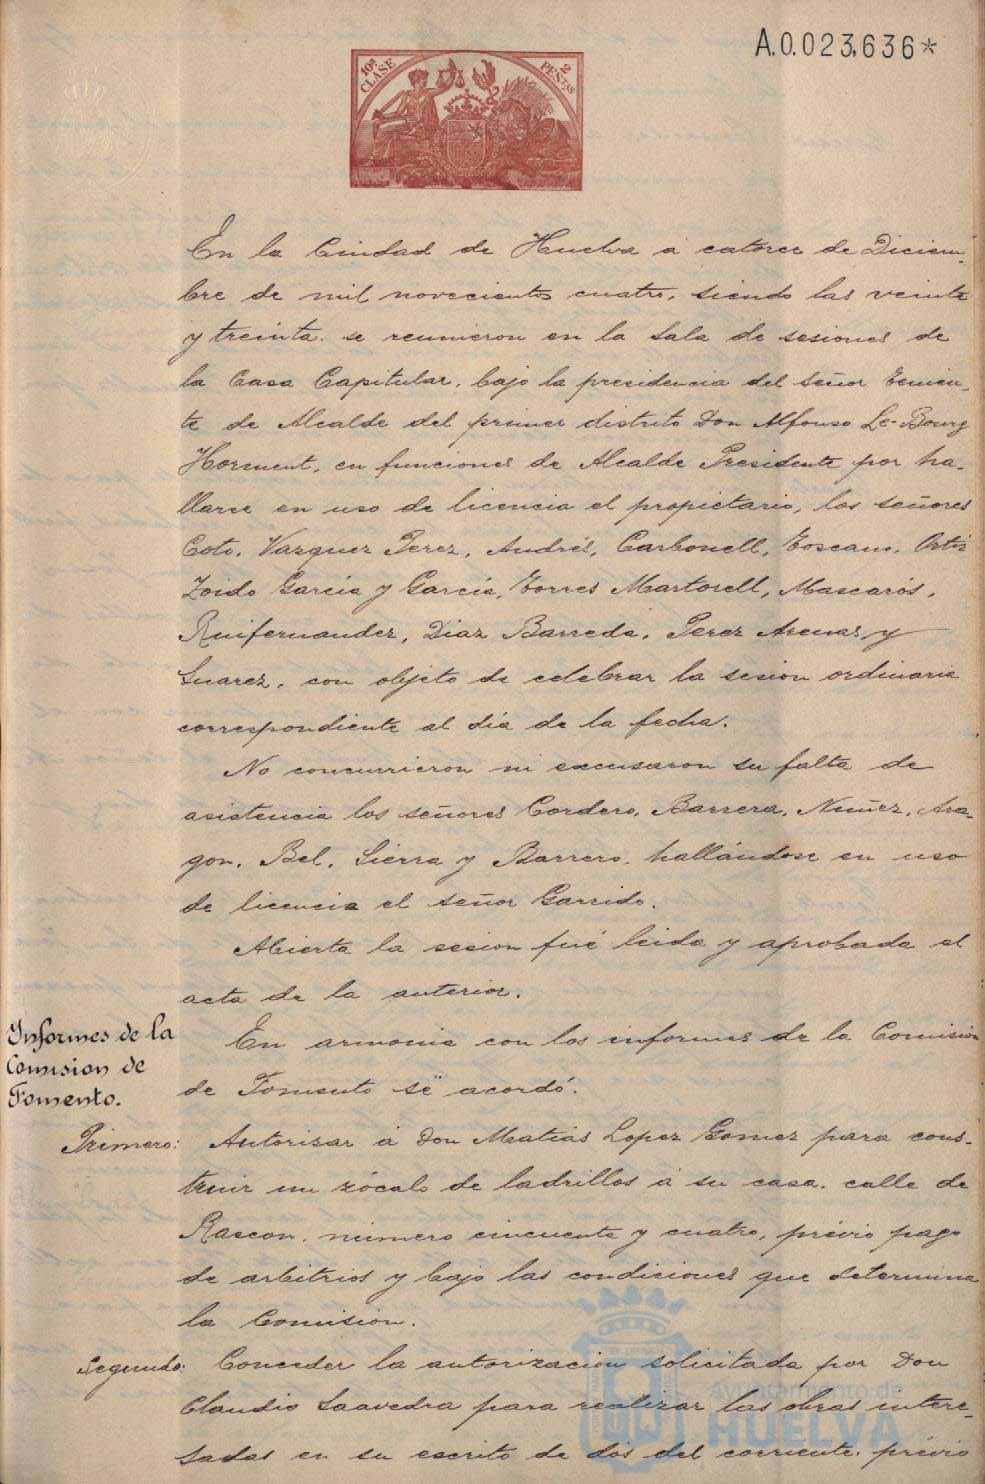 A.0.023,636*
10ª CLASE
2 PESTAS
En la Ciudad de Huelva á catorce de Diciem-
bre de mil novecientos cuatro, siendo las veinte
y treinta. se reunieron en la sala de sesiones de
la Casa Capitular, bajo la presidencia del señor Tenien-
te de Alcalde del primer distrito Don Alfonso Le-Bourg
Horment, en funciones de Alcalde Presidente por ha-
llarse en uso de licencia el propietario, los señores
Coto, Vazquez Perez, Andrés, Carbonell, Toscano, Ortiz
Zoido Garcia y Garcia, Torres Martorell, Mascarós,
Ruifernandez, Diaz Barreda, Perez Arenas, y
Suarez, con objeto de celebrar la sesion ordinaria
correspondiente al dia de la fecha.
No concurrieron ni excusaron su falta de
asistencia los señores Cordero, Barrera, Nuñez, Ara-
gon, Bel, Sierra y Barrero, hallándose en uso
de licencia el señor Garrido.
Abierta la sesion fué leida y aprobada el
acta de la anterior.
Informes de la
Comision de
Fomento.
En armonia con los informes de la Comision
de Fomento se acordó.
Primero: Autorizar á Don Matias Lopez Gomez para cons-
truir un zócalo de ladrillos á su casa, calle de
Rascon, número cincuenta y cuatro, prévio pago
de arbitrios y bajo las condiciones que determina
la Comision.
Segundo: Conceder la autorizacion solicitada por Don
Claudio Saavedra para realizar las obras intere-
sadas en su escrito de dós del corriente, prévio
Ayuntamiento de
HUELVA